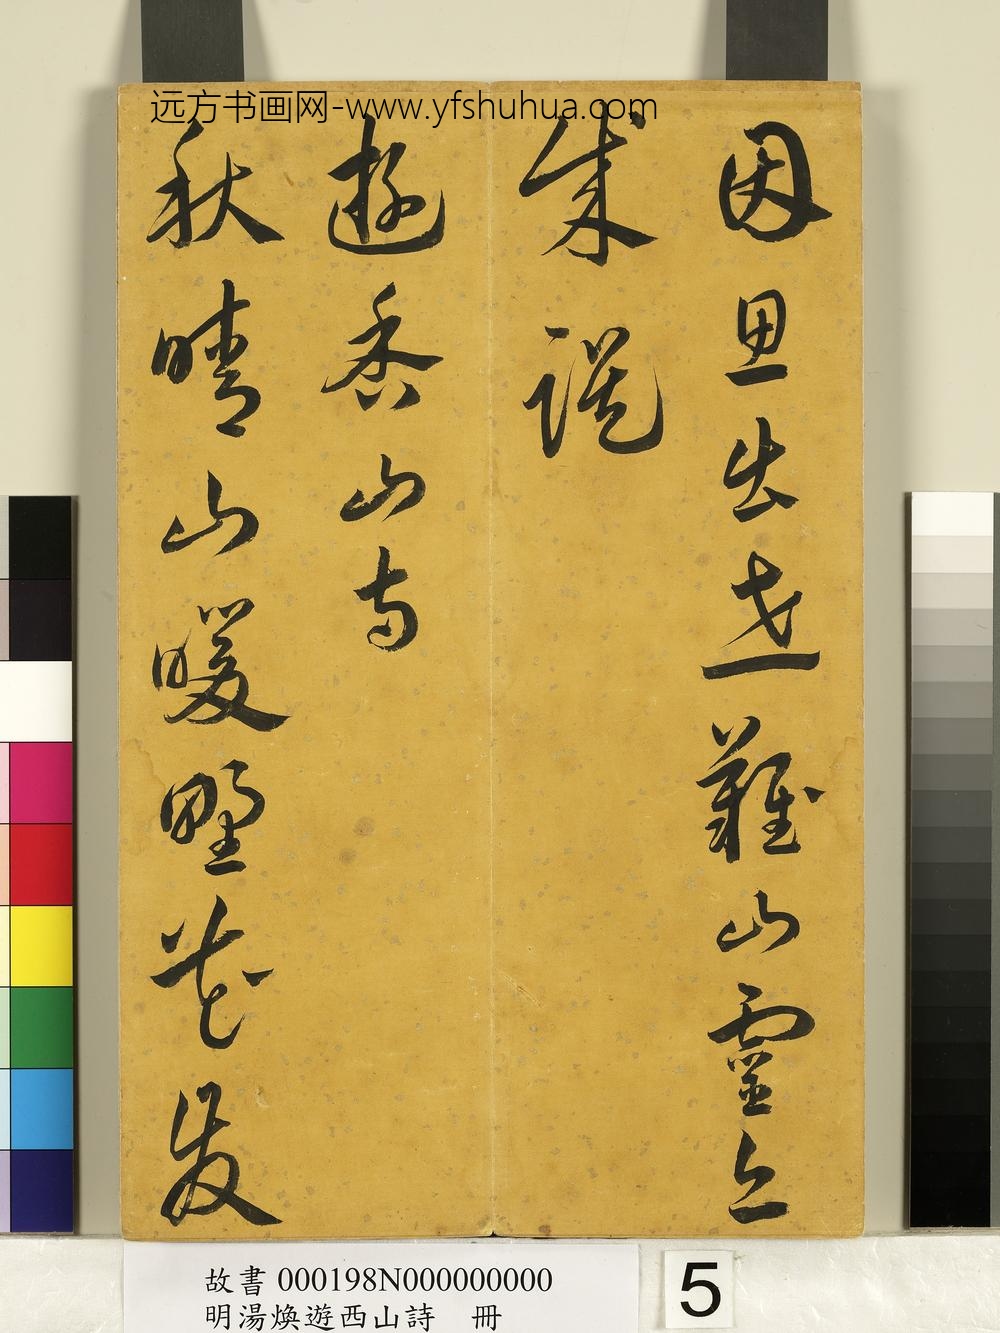 远方书画网-www.yfshuhua.com
因思出世難山靈
成
遊香山寺
秋晴山暖野花發
故書 000198N000000000
明湯煥遊西山詩 冊
5